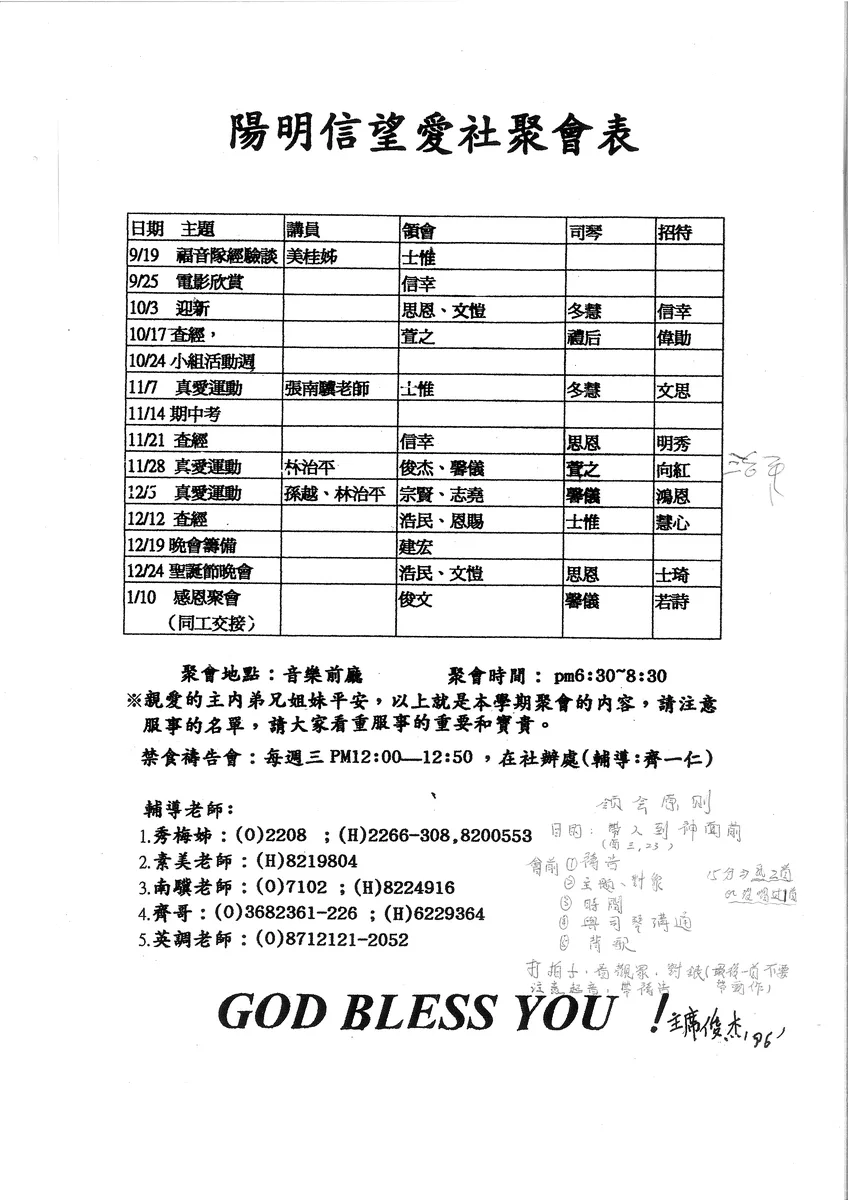 陽明信望愛社聚會表
日期 主題 講員 領會 司琴 招待
9/19 福音隊經驗談 美桂姊 士惟
9/25 電影欣賞 信幸
10/3 迎新 思恩、文愷 冬慧 信幸
10/17 查經, 萱之 禮后 偉勛
10/24 小組活動週
11/7 真愛運動 張南驥老師 士惟 冬慧 文思
11/14 期中考
11/21 查經 信幸 思恩 明秀
11/28 真愛運動 林治平 俊杰、馨儀 萱之 向紅
12/5 真愛運動 孫越、林治平 宗賢、志堯 馨儀 鴻恩
12/12 查經 浩民、恩賜 士惟 慧心
12/19 晚會籌備 建宏
12/24 聖誕節晚會 浩民、文愷 思恩 士琦
1/10 感恩聚會 俊文 馨儀 若詩
(同工交接)
聚會地點:音樂前廳 聚會時間: pm6:30~8:30
※親愛的主內弟兄姐妹平安,以上就是本學期聚會的內容,請注意
服事的名單,請大家看重服事的重要和寶貴。
禁食禱告會:每週三 PM12:00—12:50 ,在社辦處(輔導:齊一仁)
輔導老師:
1.秀梅姊:(O)2208 ;(H)2266-308,8200553
2.素美老師:(H)8219804
3.南驥老師:(O)7102 ;(H)8224916
4.齊哥:(O)3682361-226 ;(H)6229364
5.英調老師:(O)8712121-2052
領会原則
目的: 帶人到神面前
會前 ①禱告
②主題、對象
③時間
④與司琴溝通
⑤背歌
15分⇒
打拍子,看觀眾,對紙(最後一首不要
注意起音,帶禱告 帶動作)
GOD BLESS YOU !
主席俊杰,'96